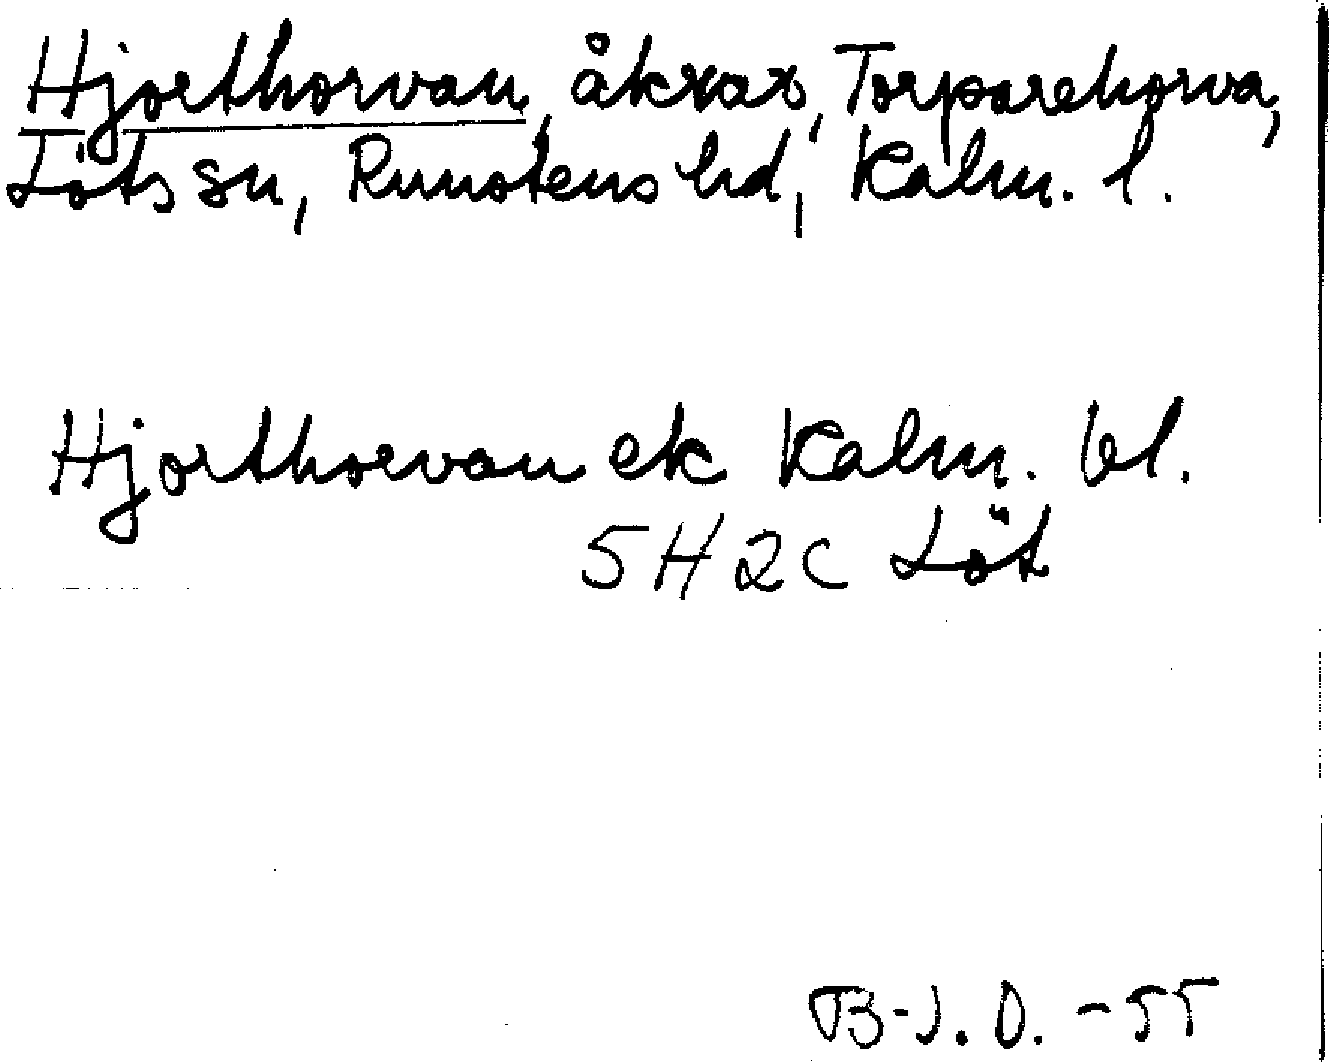 Hjorthorvan, åkrar, Torparehorva,
Löts sn, Runstens hd, Kalm. l.
Hjorthorvan ek Kalm. bl.
5H2c Löt
B-J. O. -55